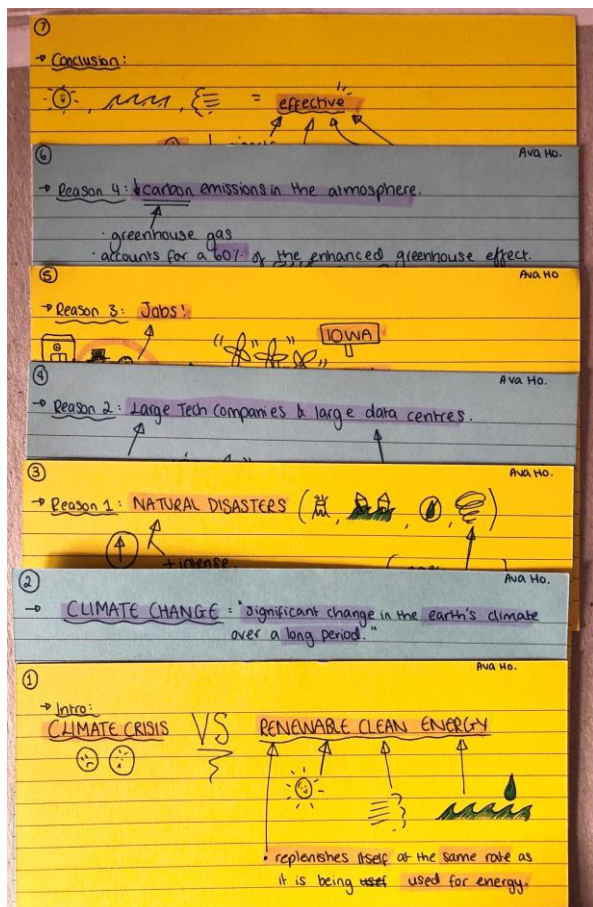 ⑦
→ Conclusion:
, , = effective
⑥ Ava Ho.
→ Reason 4: ↓carbon emissions in the atmosphere.
· greenhouse gas
· accounts for a 60% of the enhanced greenhouse effect.
⑤ Ava Ho
→ Reason 3: Jobs!
IOWA
④ Ava Ho.
→ Reason 2: Large Tech Companies & large data centres.
③ Ava Ho.
→ Reason 1: NATURAL DISASTERS ( , , , )
+ intense
② Ava Ho.
→ CLIMATE CHANGE = "significant change in the earth's climate
over a long period."
① Ava Ho.
→ Intro:
CLIMATE CRISIS VS RENEWABLE CLEAN ENERGY
• replenishes itself at the same rate as
it is being used for energy.